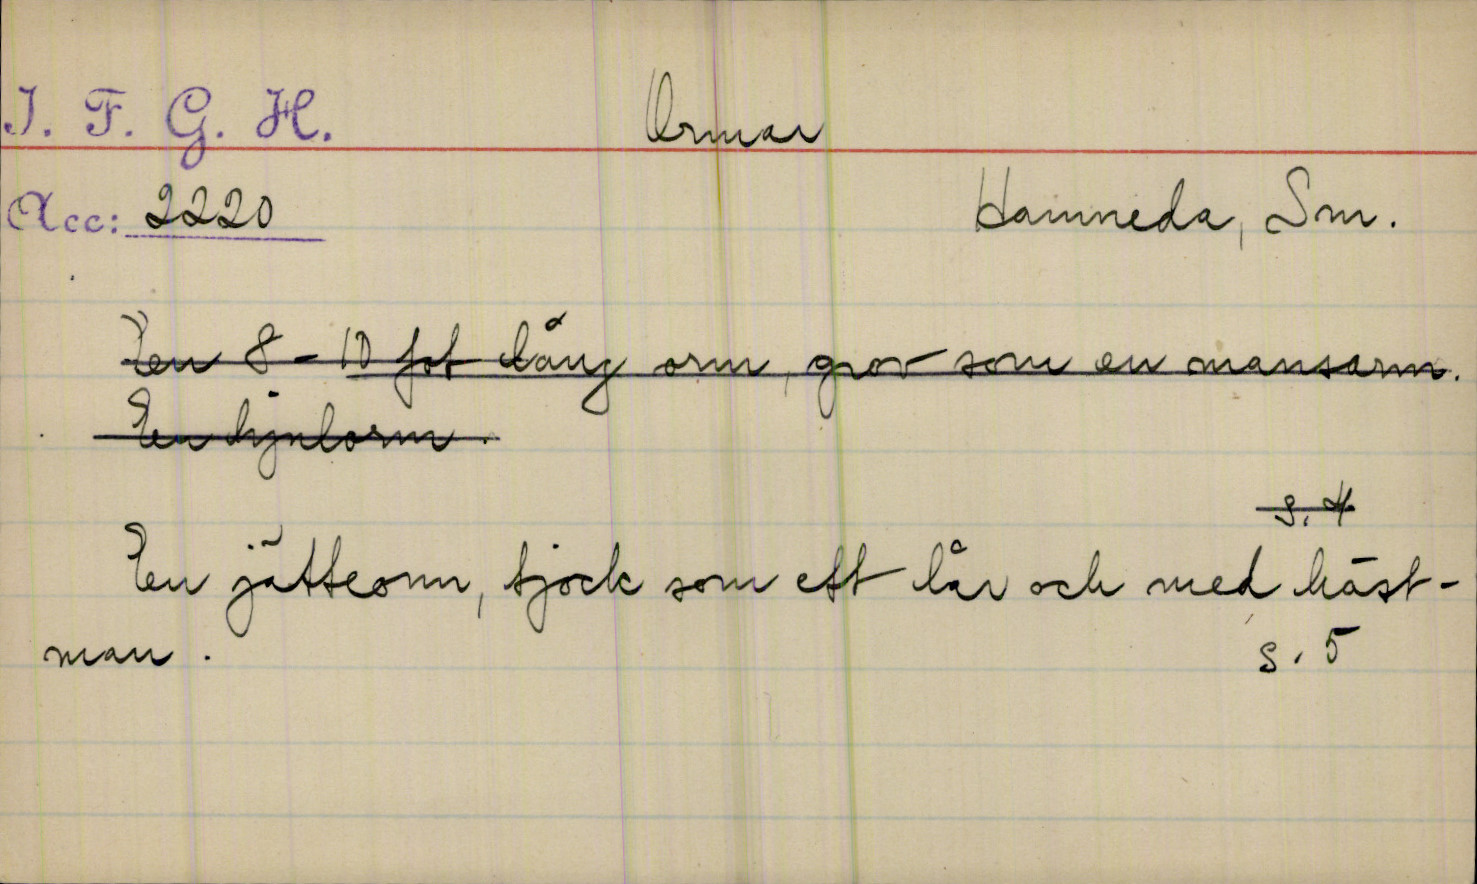 I. F. G. H.
Ormar
Acc: 2220
Hamneda, Sm.
En 8-10 fot lång orm, grov som en mansarm.
En hjulorm.
s. 4
En jätteorm, tjock som ett lår och med häst-
man.
s. 5